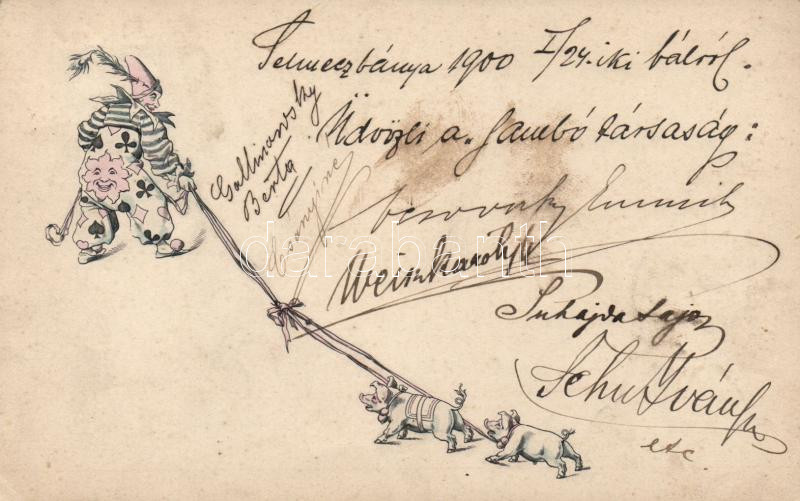 Selmeczbánya 1900 I/24-iki bálról.
Üdvözli a „Jambó társaság:
Gallinowsky
Berta
Emmik
Weisz Károly
Puhajda Lajo
Schu Iván
etc.
darabanth